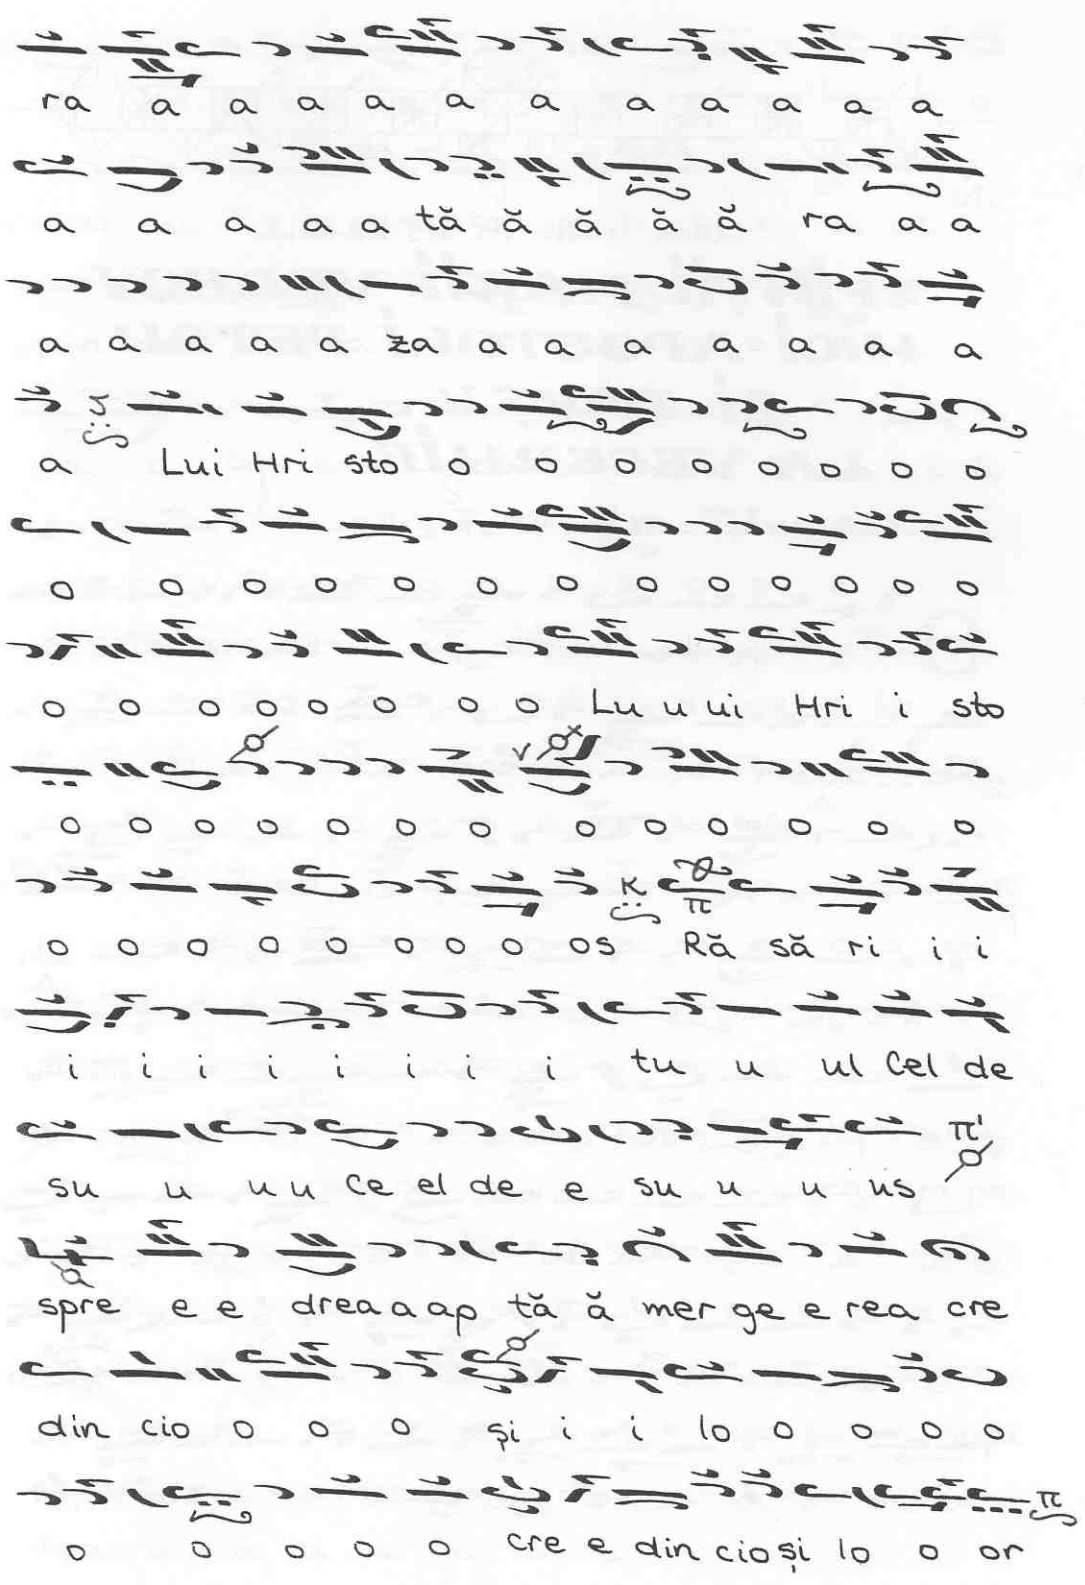 ra a a a a a a a a a a a
a a a a a tă ă ă ă ă ra a a
a a a a a za a a a a a a a
a Lui Hri sto o o o o o o o o
o o o o o o o o o o o o o
o o o o o o o o Lu u ui Hri i sto
o o o o o o o o o o o o o
o o o o o o o o os Ră să ri i i
i i i i i i i i tu u ul Cel de
su u u u Ce el de e su u u us
spre e e drea a ap tă ă mer ge e rea cre
din cio o o o și i i lo o o o o
o o o o o cre e din cio și lo o or